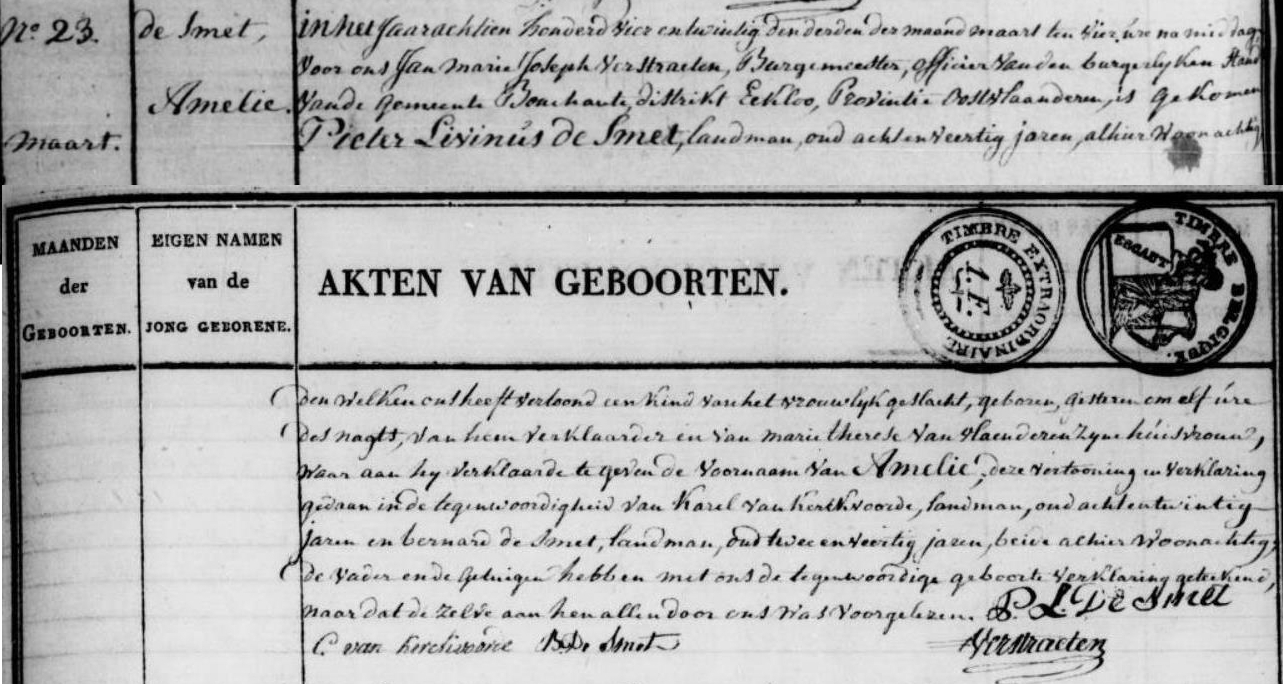 N.° 23.
maart.
de Smet,
Amelie.
in het Jaar achtien honderd vier en twintig den derden der maand maart ten vier úre na middag
voor ons Jan Marie Joseph Verstraeten, Burgemeester, officier van den burgerlyken Stand
van de gemeente Bouchaute, distrikt Eekloo, Provintie Oostvlaanderen, is gekomen
Pieter Livinús de Smet, landman, oud acht en veertig jaren, alhier woonachtig
MAANDEN
der
GEBOORTEN.
EIGEN NAMEN
van de
JONG GEBORENE.
AKTEN VAN GEBOORTEN.
TIMBRE EXTRAORDINAIRE
1. F.
TIMBRE BELGIQUE.
ESCAUT
den welken ons heeft vertoond een kind van het vrouwlyk geslacht, geboren, gisteren om elf úre
des nagts, van hem verklaarder en van marie therese van vlaenderen zyne húisvrouw,
waar aan hy verklaarde te geven de voornaam van Amelie, deze vertooning en verklaring
gedaan in de tegenwoordigheid van Karel van kerckvoorde, landman, oud acht en twintig
jaren en bernard de Smet, landman, oud twee en veertig jaren, beide alhier woonachtig,
de vader en de getuigen hebben met ons de tegenwoordige geboorte verklaring geteekend,
naar dat de zelve aan hen allen door ons was voorgelezen. P. L. De Smet
C van kerckvoorde B. De Smet Verstraeten